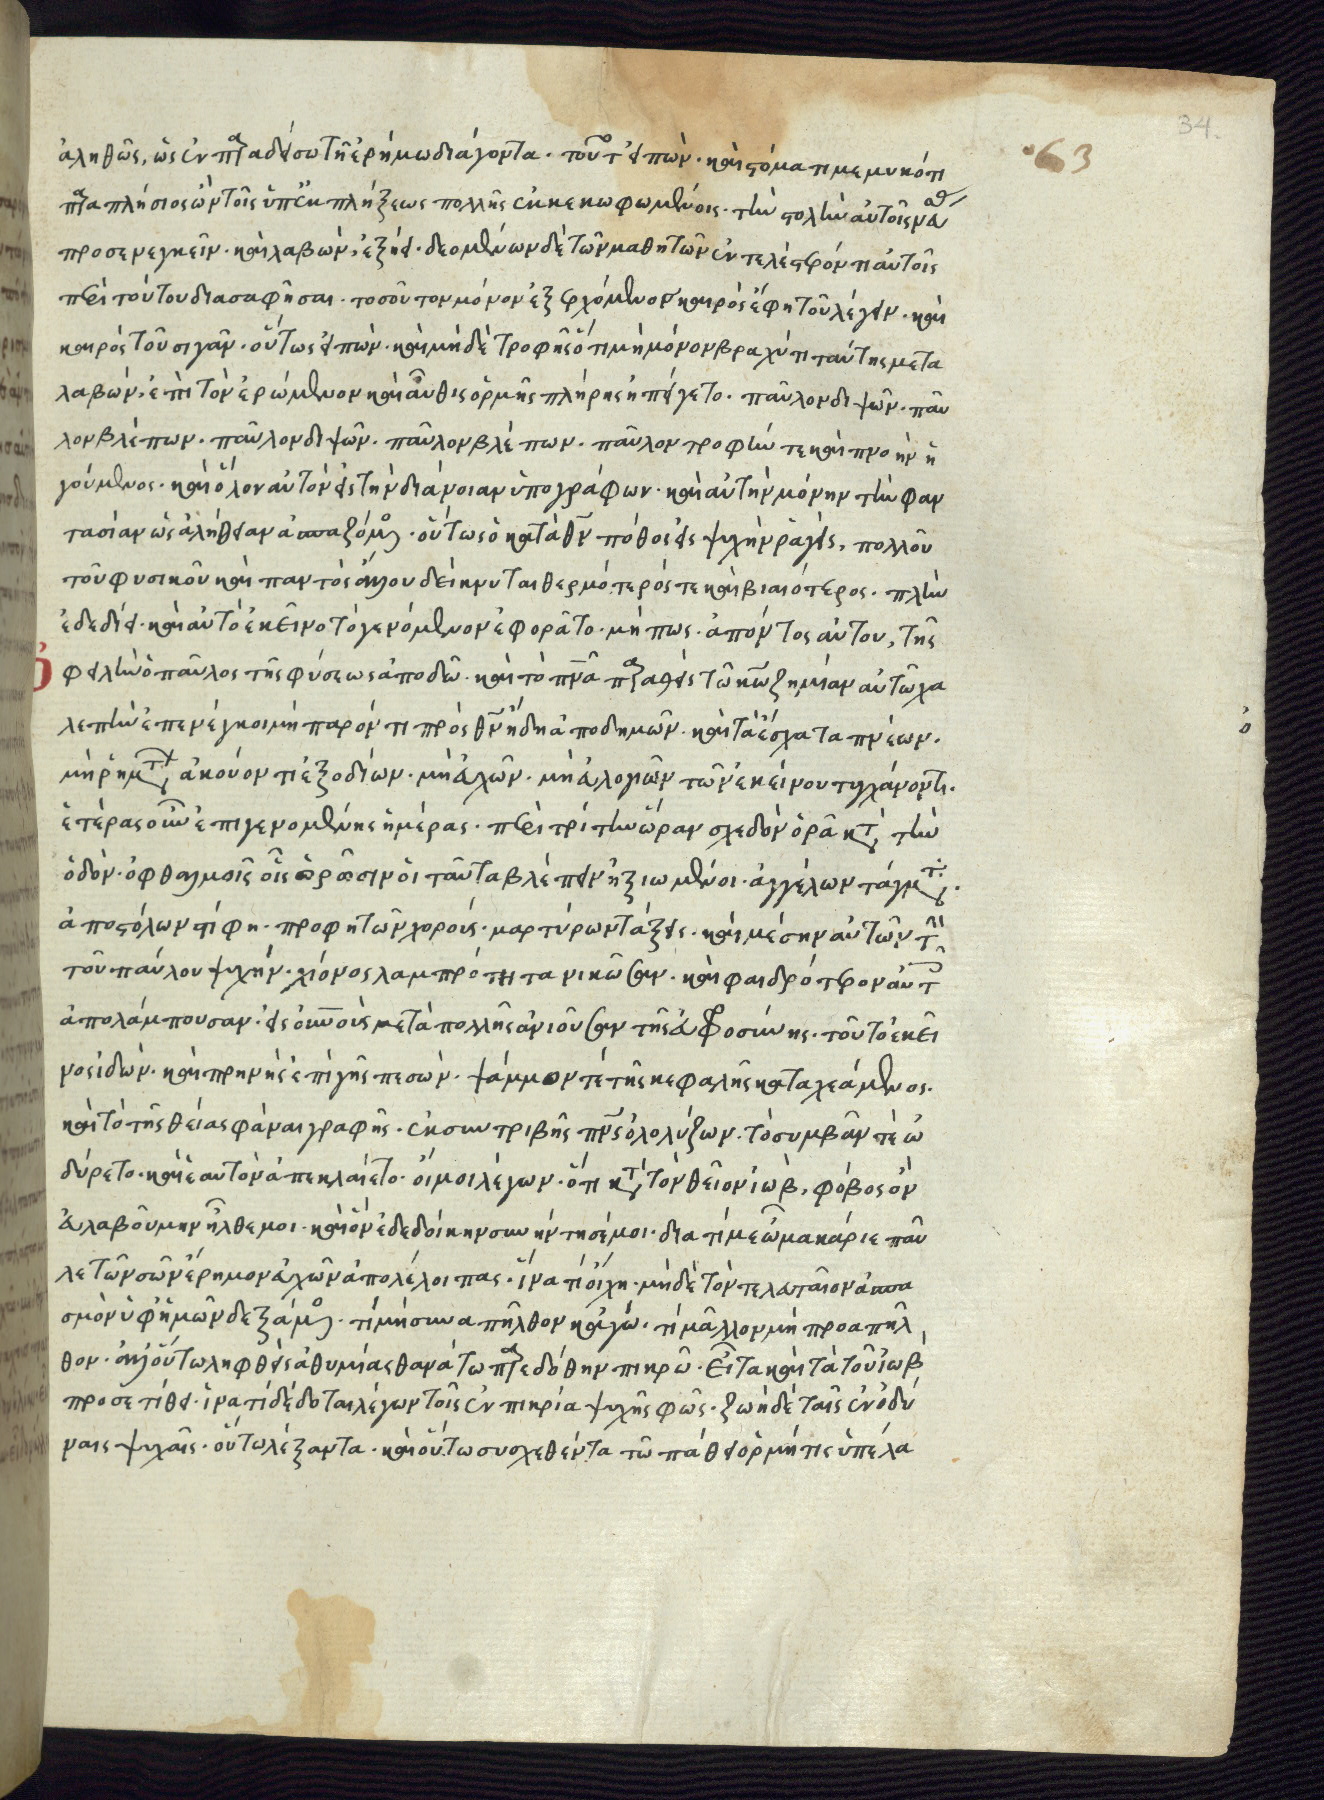 34.
63
ἀληθῶς, ὡς ἐν παραδείσω τῆ ἐρήμω διάγοντα. τοῦτ' εἰπὼν. καὶ στόματι μεμυκότι
παραπλήσιος ὢν τοῖς ὑπ' ἐκπλήξεως πολλῆς ἐκκεκωφωμένοις. τὴν στολὴν αὐτοῖς
προσενεγκεῖν. καὶ λαβὼν, ἐξήει. δεομένων δὲ τῶν μαθητῶν ἐντελέστερόν τι αὐτοῖς
περὶ τούτου διασαφῆσαι. τοσοῦτον μόνον ἐξερχόμενον καιρὸς ἔφη τοῦ λέγειν. καὶ
καιρὸς τοῦ σιγᾶν. οὕτως εἰπὼν. καὶ μηδὲ τροφῆς ὅτι μὴ μόνον βραχύ τι ταύτης μετα
λαβὼν, ἐπὶ τὸν ἐρώμενον καὶ αὖθις ὁρμῆς πλήρης ἠπείγετο. παῦλον διψῶν. παῦ
λον βλέπων. παῦλον διψῶν. παῦλον βλέπων. παῦλον τροφήν τε καὶ πνοὴν ἡ
γούμενος. καὶ ὅλον αὐτὸν εἰς τὴν διάνοιαν ὑπογράφων. καὶ αὐτὴν μόνην τὴν φαν
τασίαν ὡς ἀλήθειαν ἀσπαζόμενος. οὕτως ὁ κατὰ θν πόθος εἰς ψυχὴν ῥαγεὶς, πολλοῦ
τοῦ φυσικοῦ καὶ παντὸς ἄλλου δείκνυται θερμότερός τε καὶ βιαιότερος. πλὴν
ἐδεδίει. καὶ αὐτὸ ἐκεῖνο τὸ γενόμενον ἐφορᾶτο. μήπως. ἀπόντος αὐτοῦ, τῆς
ὀφειλὴν ὁ παῦλος τῆς φύσεως ἀποδῶ. καὶ τὸ πνα παραθεὶς τῶ κω ζημίαν αὐτῶ χα
λεπὴν ἐπενέγκοι μὴ παρόντι πρὸς θν ἤδη ἀποδημῶν. καὶ τὰ ἔσχατα πνέων.
μὴ ῥημάτων ἀκούοντι ἐξοδίων. μὴ εὐχῶν. μὴ εὐλογιῶν τῶν ἐκείνου τυγχάνοντι.
ἑτέρας οὖν ἐπιγενομένης ἡμέρας. περὶ τρίτην ὥραν σχεδὸν ὁρᾶ κατὰ τὴν
ὁδὸν. ὀφθαλμοῖς οἷς ὁρῶσιν οἱ ταῦτα βλέπειν ἠξιωμένοι. ἀγγέλων τάγματα.
ἀποστόλων στίφη. προφητῶν χορούς. μαρτύρων τάξεις. καὶ μέσην αὐτῶν τὴν
τοῦ παύλου ψυχήν. χιόνος λαμπρότητα νικῶσαν. καὶ φαιδρότερον αὐτῶν
ἀπολάμπουσαν. εἰς οὐνοὺς μετὰ πολλῆς ἀνιοῦσαν τῆς εὐφροσύνης. τοῦτο ἐκεῖ
νος ἰδὼν. καὶ πρηνὴς ἐπὶ γῆς πεσὼν. ψάμμον τὲ τῆς κεφαλῆς καταχεάμενος.
καὶ τὸ τῆς θείας φάναι γραφῆς. ἐκ συντριβῆς πνς ὀλολύζων. τὸ συμβὰν τὲ ὠ
δύρετο. καὶ ἑαυτὸν ἀπεκλαίετο. οἴμοι λέγων. ὅτι κατὰ τὸν θεῖον ἰώβ, φόβος ὃν
εὐλαβούμην ἦλθε μοι. καὶ ὃν ἐδεδοίκην συνήντησέ μοι. διατί με ὦ μακάριε παῦ
λε τῶν σῶν ἔρημον εὐχῶν ἀπολέλοιπας. ἵνα τί οἴχη. μηδὲ τὸν τελευταῖον ἀσπα
σμὸν ὑφ' ἡμῶν δεξάμενος. τί μὴ συναπῆλθον κἀγώ. τί μᾶλλον μὴ προαπῆλ
θον. ἀλλ' οὕτω ληφθεὶς ἀθυμίας θανάτω παρεδόθην πικρῶ. εἶτα καὶ τὰ τοῦ ἰωβ
προσετίθει. ἱνατί δέδοται λέγων τοῖς ἐν πικρία ψυχῆς φῶς. ζωὴ δὲ ταῖς ἐν ὀδύ
ναις ψυχαῖς. οὕτω λέξαντα. καὶ οὕτω συσχεθέντα τῶ πάθει ὁρμή τις ὑπέλα